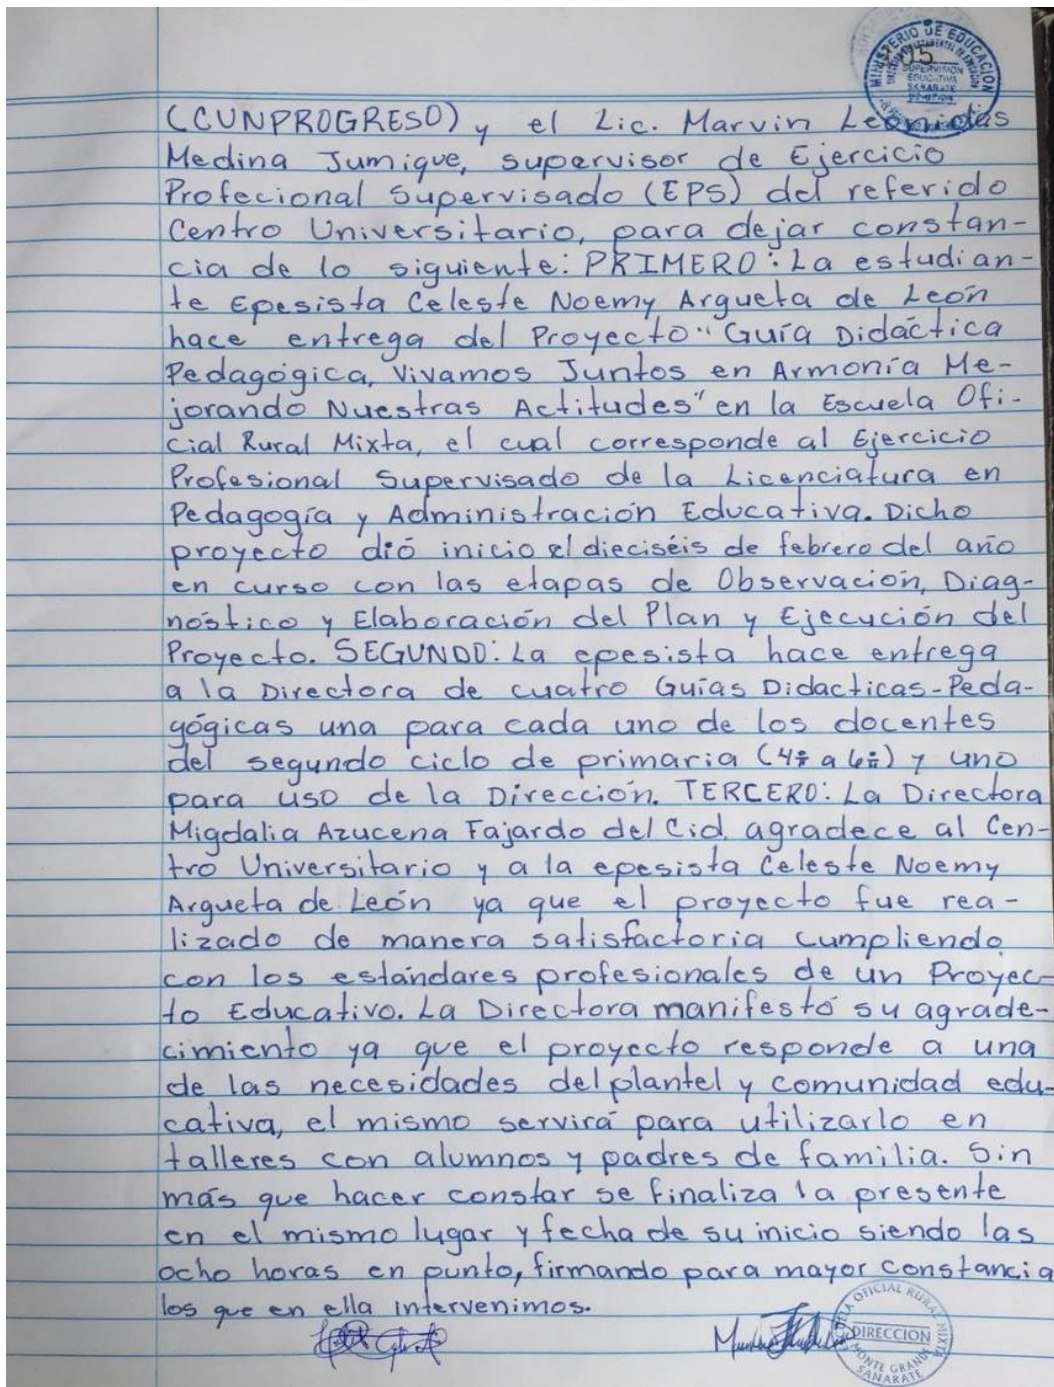 MINISTERIO DE EDUCACION
15
SUPERVISIÓN
EDUCATIVA
SANARATE
(CUNPROGRESO) y el Lic. Marvin Leonidas
Medina Jumique, supervisor de Ejercicio
Profecional Supervisado (EPS) del referido
Centro Universitario, para dejar constan-
cia de lo siguiente: PRIMERO: La estudian-
te Epesista Celeste Noemy Argueta de León
hace entrega del Proyecto "Guía Didáctica
Pedagógica, Vivamos Juntos en Armonía Me-
jorando Nuestras Actitudes" en la Escuela Ofi-
cial Rural Mixta, el cual corresponde al Ejercicio
Profesional Supervisado de la Licenciatura en
Pedagogía y Administración Educativa. Dicho
proyecto dió inicio el dieciséis de febrero del año
en curso con las etapas de Observación, Diag-
nóstico y Elaboración del Plan y Ejecución del
Proyecto. SEGUNDO: La epesista hace entrega
a la Directora de cuatro Guías Didacticas-Peda-
gógicas una para cada uno de los docentes
del segundo ciclo de primaria (4º a 6º) y uno
para uso de la Dirección. TERCERO: La Directora
Migdalia Azucena Fajardo del Cid, agradece al Cen-
tro Universitario y a la epesista Celeste Noemy
Argueta de León ya que el proyecto fue rea-
lizado de manera satisfactoria cumpliendo
con los estándares profesionales de un Proyec-
to Educativo. La Directora manifestó su agrade-
cimiento ya que el proyecto responde a una
de las necesidades del plantel y comunidad edu-
cativa, el mismo servirá para utilizarlo en
talleres con alumnos y padres de familia. Sin
más que hacer constar se finaliza la presente
en el mismo lugar y fecha de su inicio siendo las
ocho horas en punto, firmando para mayor constancia
los que en ella intervenimos.
ESCUELA OFICIAL RURAL MIXTA
DIRECCION
MONTE GRANDE
SANARATE